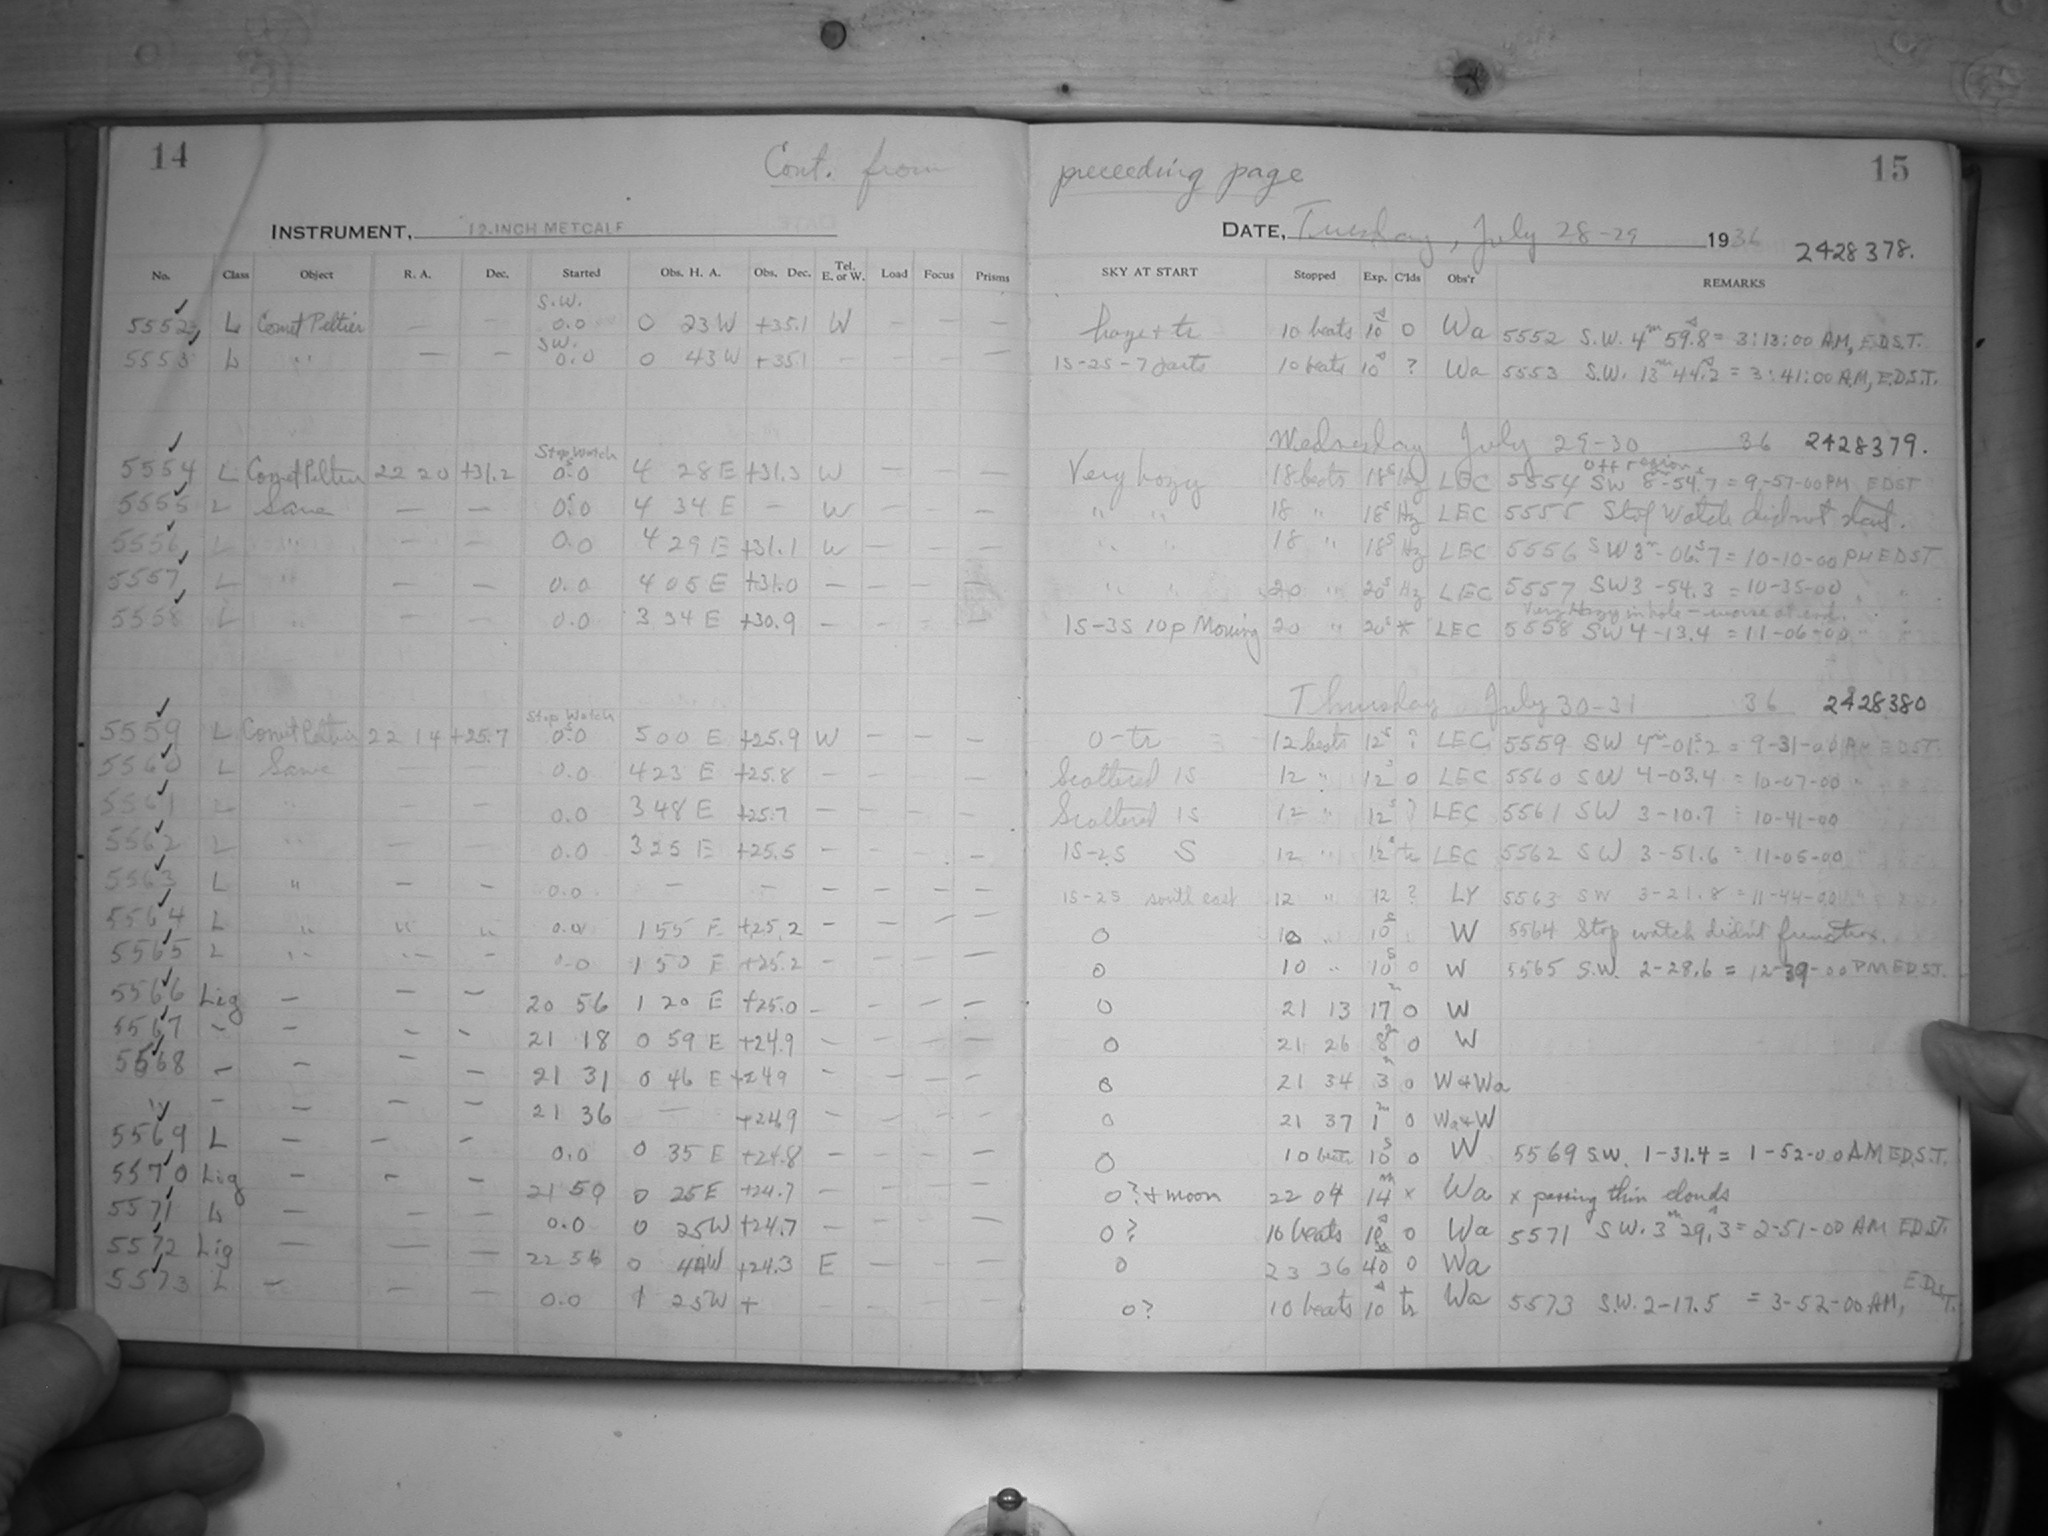 14
Cont. from preceeding page
15
INSTRUMENT, 12-INCH METCALF
DATE, Tuesday, July 28-29 1936 2428378.
No. Class Object R. A. Dec. Started Obs. H. A. Obs. Dec. Tel. E. or W. Load Focus Prisms SKY AT START Stopped Exp. C'lds Obs'r REMARKS
S.W.
5552 L Comet Peltier — — 0.0 0 23 W +35.1 W — — — haze + tr 10 beats 10s 0 Wa 5552 S.W. 4m 59.8s = 3:13:00 AM, E.D.S.T.
S.W.
5553 L " — — 0.0 0 43 W +35.1 — — — — 1S-2S-7 parts 10 beats 10s ? Wa 5553 S.W. 13m 44.2s = 3:41:00 A.M, E.D.S.T.
Wednesday July 29-30 36 2428379.
Stop Watch
off region
5554 L Comet Peltier 22 20 +31.2 0s.0 4 28 E +31.3 W — — — Very hazy 18 beats 18s Hz LEC 5554 SW 8-54.7 = 9-57-00 PM EDST
5555 L Same — — 0s.0 4 34 E — W — — — " " 18 " 18s Hz LEC 5555 Stop Watch did not start.
5556 L " — — 0.0 4 29 E +31.1 W — — — " " 18 " 18s Hz LEC 5556 SW 3m-06s.7 = 10-10-00 PM EDST
5557 L " — — 0.0 4 05 E +31.0 — — — — " " 20 " 20s Hz LEC 5557 SW 3-54.3 = 10-35-00 " "
Very Hazy in hole - worse at end.
5558 L " — — 0.0 3 34 E +30.9 — — — — 1S-3S 10p Moving 20 " 20s * LEC 5558 SW 4-13.4 = 11-06-00 " "
Thursday July 30-31 36 2428380
Stop Watch
5559 L Comet Peltier 22 14 +25.7 0s.0 5 00 E +25.9 W — — — 0-tr 12 beats 12s ? LEC 5559 SW 4m-01s.2 = 9-31-00 EDST.
5560 L Same — — 0.0 4 23 E +25.8 — — — — Scattered 1S 12 " 12s 0 LEC 5560 SW 4-03.4 = 10-07-00 "
5561 L " — — 0.0 3 48 E +25.7 — — — — Scattered 1S 12 " 12s ? LEC 5561 SW 3-10.7 = 10-41-00
5562 L " — — 0.0 3 25 E +25.5 — — — — 1S-2S S 12 " 12s tr LEC 5562 SW 3-51.6 = 11-05-00
5563 L " — — 0.0 — — — — — — 1S-2S south east 12 " 12 ? LY 5563 SW 3-21.8 = 11-44-00
5564 L " " " 0.0 1 55 E +25.2 — — — — 0 10 " 10s W 5564 Stop watch didn't function.
5565 L " — — 0.0 1 50 E +25.2 — — — — 0 10 " 10s 0 W 5565 S.W. 2-28.6 = 12-39-00 PM EDST.
5566 Lig — — — 20 56 1 20 E +25.0 — — — — 0 21 13 17m 0 W
5567 — — — — 21 18 0 59 E +24.9 — — — — 0 21 26 8m 0 W
5568 — — — — 21 31 0 46 E +24.9 — — — — 0 21 34 3m 0 W+Wa
" — — — — 21 36 — +24.9 — — — — 0 21 37 1m 0 Wa+W
5569 L — — — 0.0 0 35 E +24.8 — — — — 0 10 beats 10s 0 W 5569 S.W. 1-31.4 = 1-52-00 AM E.D.S.T.
5570 Lig — — — 21 50 0 25 E +24.7 — — — — 0? + moon 22 04 14m x Wa x passing thin clouds
5571 L — — — 0.0 0 25 W +24.7 — — — — 0? 10 beats 10s 0 Wa 5571 S.W. 3m 29.3s = 2-51-00 AM EDST.
5572 Lig — — — 22 56 0 44 W +24.3 E — — — 0 23 36 40m 0 Wa
5573 L — — — 0.0 1 25 W + — — — — 0? 10 beats 10s tr Wa 5573 S.W. 2-17.5 = 3-52-00 AM, E.D.S.T.